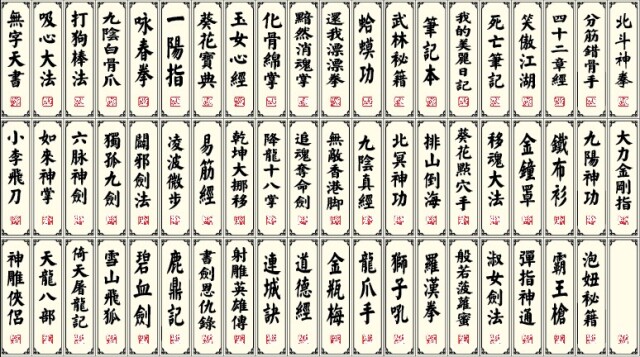 無字天書
吸心大法
打狗棒法
九陰白骨爪
咏春拳
一陽指
葵花寶典
玉女心經
化骨綿掌
黯然消魂掌
還我漂漂拳
蛤蟆功
武林秘籍
筆記本
我的美麗日記
死亡筆記
笑傲江湖
四十二章經
分筋錯骨手
北斗神拳
小李飛刀
如來神掌
六脉神劍
獨孤九劍
闢邪劍法
凌波微步
易筋經
乾坤大挪移
降龍十八掌
追魂奪命劍
無敵香港脚
九陰真經
北冥神功
排山倒海
葵花點穴手
移魂大法
金鐘罩
鐵布衫
九陽神功
大力金剛指
神雕俠侶
天龍八部
倚天屠龍記
雪山飛狐
碧血劍
鹿鼎記
書劍恩仇錄
射雕英雄傳
連城訣
道德經
金瓶梅
龍爪手
獅子吼
羅漢拳
般若菠蘿蜜
淑女劍法
彈指神通
霸王槍
泡妞秘籍